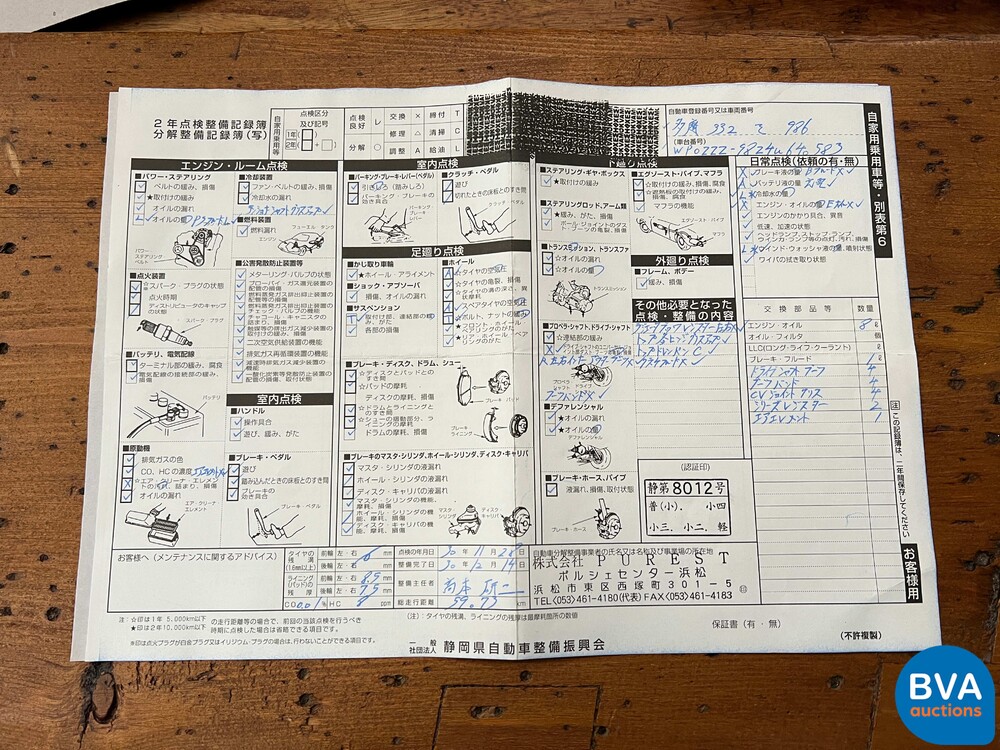 2年点検整備記録簿
分解整備記録簿(写)
自家用等
点検区分
及び記号
1年
2年
点検良好 レ 交換 × 締付 T
修理 △ 清掃 C
分解 ○ 調整 A 給油 L
自動車登録番号又は車両番号
332 て 986
(車台番号)
自家用乗用車等・別表第6
エンジン・ルーム点検
■パワー・ステアリング
ベルトの緩み、損傷
★取付けの緩み
オイルの漏れ
オイルの量
パワーステアリングベルト
■点火装置
☆スパーク・プラグの状態
点火時期
ディストリビュータのキャップの状態
スパーク・プラグ
■バッテリ、電気配線
ターミナル部の緩み、腐食
電気配線の接続部の緩み、損傷
バッテリ
■原動機
排気ガスの色
CO、HCの濃度
☆エア・クリーナ・エレメントの汚れ、詰まり、損傷
オイルの漏れ
エア・クリーナエレメント
■冷却装置
ファン・ベルトの緩み、損傷
冷却水の漏れ
■燃料装置
燃料漏れ
エンジン
フューエル・タンク
■公害発散防止装置等
メターリング・バルブの状態
ブローバイ・ガス還元装置の配管の損傷
燃料蒸発ガス排出抑止装置の配管等の損傷
燃料蒸発ガス排出抑止装置のチェック・バルブの機能
チャコール・キャニスタの詰まり、損傷
触媒等の排出ガス減少装置の取付けの緩み、損傷
二次空気供給装置の機能
排気ガス再循環装置の機能
減速時排気ガス減少装置の機能
一酸化炭素等発散防止装置の配管の損傷、取付状態
室内点検
■ハンドル
操作具合
遊び、緩み、がた
■ブレーキ・ペダル
遊び
踏み込んだときの床板とのすき間
ブレーキの効き具合
ブレーキ・ペダル
室内点検
■パーキング・ブレーキ・レバー(ペダル)
引きしろ(踏みしろ)
パーキング・ブレーキの効き具合
パーキング・ブレーキレバー
■クラッチ・ペダル
遊び
切れたときの床板とのすき間
クラッチ・ペダル
足廻り点検
■かじ取り車輪
★ホイール・アライメント
■ショック・アブソーバ
損傷、オイルの漏れ
■サスペンション
取付部、連結部の緩み、がた
各部の損傷
■ホイール
☆タイヤの空気圧
☆タイヤの亀裂、損傷
☆タイヤの溝の深さ、異状摩耗
スペアタイヤの空気圧
☆ボルト、ナットの緩み
■ブレーキ・ディスク、ドラム、シュー
☆ディスクとパッドとのすき間
☆パッドの摩耗
ディスクの摩耗、損傷
☆ドラムとライニングとのすき間
☆シューの摺動部分、ライニングの摩耗
ドラムの摩耗、損傷
ブレーキ・パッド
ブレーキ・ライニング
■ブレーキのマスタ・シリンダ、ホイール・シリンダ、ディスク・キャリパ
マスタ・シリンダの液漏れ
ホイール・シリンダの液漏れ
ディスク・キャリパの液漏れ
マスタ・シリンダの機能、摩耗、損傷
ホイール・シリンダの機能、摩耗、損傷
ディスク・キャリパの機能、摩耗、損傷
マスタ・シリンダ
ディスク・キャリパ
下廻り点検
■ステアリング・ギヤ・ボックス
★取付けの緩み
■ステアリングのロッド、アーム類
★緩み、がた、損傷
ボール・ジョイントのダスト・ブーツの亀裂、損傷
■トランスミッション、トランスファ
☆オイルの漏れ
☆オイルの量
トランスミッション
■プロペラ・シャフト、ドライブ・シャフト
☆連結部の緩み
プロペラシャフト
■デファレンシャル
★オイルの漏れ
★オイルの量
デファレンシャル
■ブレーキ・ホース、パイプ
液漏れ、損傷、取付状態
ブレーキ・ホース
■エグゾースト・パイプ、マフラ
☆取付けの緩み、損傷、腐食
☆遮熱板の取付けの緩み、損傷、腐食
マフラの機能
エグゾースト・パイプ
マフラ
外廻り点検
■フレーム、ボデー
緩み、損傷
その他必要となった点検・整備の内容
(認証印)
静第8012号
普(小)、 小四
小三、小二、軽
日常点検(依頼の有・無)
ブレーキ液の量
バッテリ液の量
冷却水の量
エンジン・オイルの量
エンジンのかかり具合、異音
低速、加速の状態
ヘッドランプ、ストップ・ランプ、ウインカ・ランプ等の点灯、汚れ、損傷
ウインド・ウォッシャ液の量、噴射状態
ワイパの拭き取り状態
交換部品等 数量
エンジン・オイル 8 ℓ
オイル・フィルタ 個
LLC(ロング・ライフ・クーラント) ℓ
ブレーキ・フルード 1 ℓ
ドライブシャフト ブーツ 4
ブーツバンド 4
CVジョイント グリス 4
2
エアエレメント 1
[注]この記録簿は、二年間保存してください
お客様用
お客様へ(メンテナンスに関するアドバイス)
タイヤの残溝(1.6mm以上)
前輪 左・右 6 mm
後輪 左・右 mm
ライニング(パッド)の残厚
前輪 左・右 8.5 mm
後輪 左・右 7.5 mm
CO 0.01 % HC 8 ppm
点検の年月日 30年11月28日
整備完了日 30年12月14日
整備主任者
総走行距離 km
自動車分解整備事業者の氏名又は名称及び事業場の所在地
株式会社 PUREST
ポルシェセンター浜松
浜松市東区西塚町301-5
TEL<053>461-4180(代表) FAX<053>461-4183
注:☆印は1年 5,000km以下
★印は2年10,000km以下
の走行距離等の場合で、前回の当該点検を行うべき時期に点検した場合は省略できる項目です。
※印は点火プラグが白金プラグ又はイリジウム・プラグの場合は、行わないことができる項目です。
(注):タイヤの残溝、ライニングの残厚は最摩耗箇所の数値
保証書(有・無)
(不許複製)
一般社団法人 静岡県自動車整備振興会
BVA
auctions